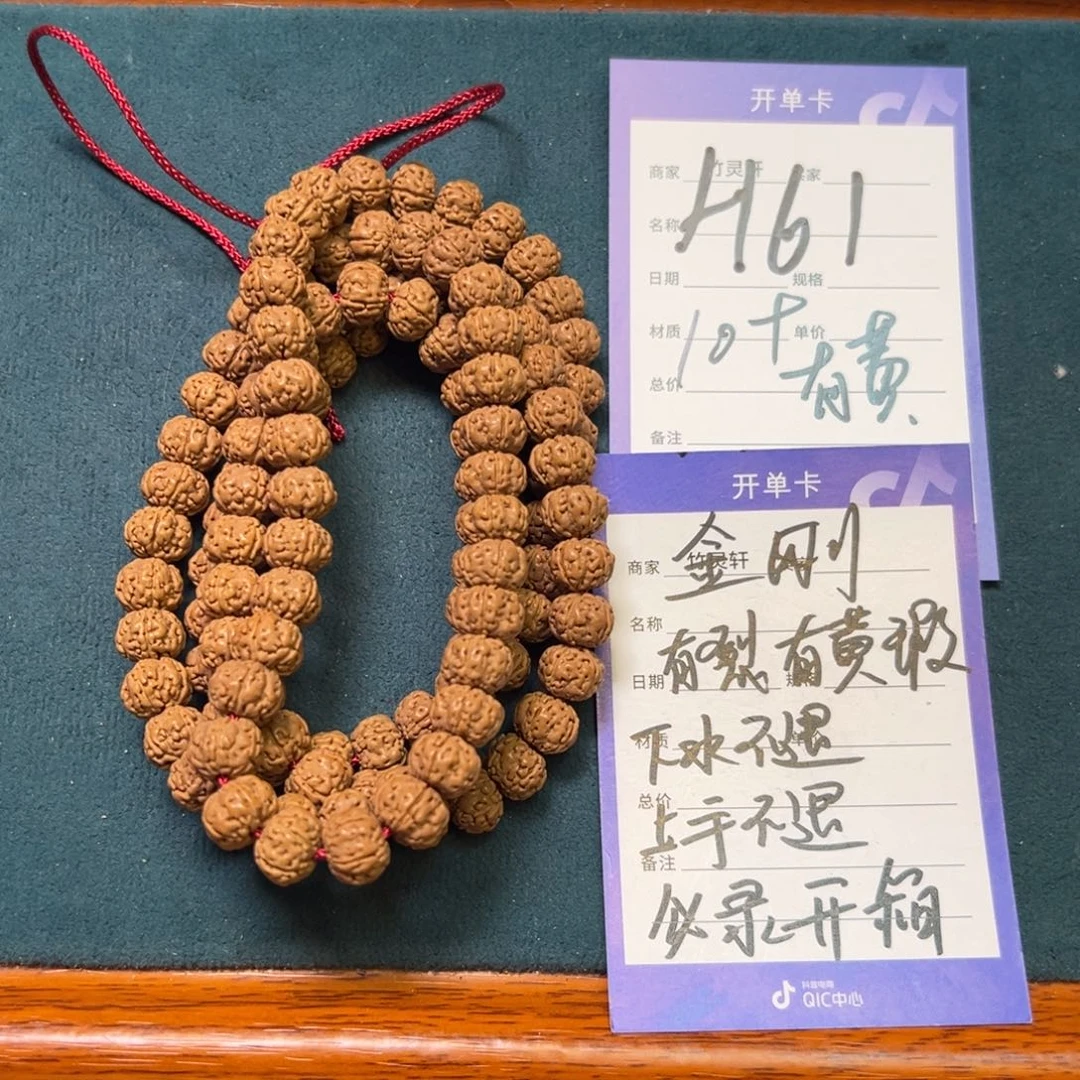 开单卡
商家 竹灵轩 买家
H61
名称
日期 规格
材质 10+ 单价
有黄
总价
备注
开单卡
金刚
商家 竹灵轩
名称
有裂有黄瑕
日期 规格
下水不退
材质 单价
总价
上手不退
备注
必录开箱
抖音电商
QIC中心